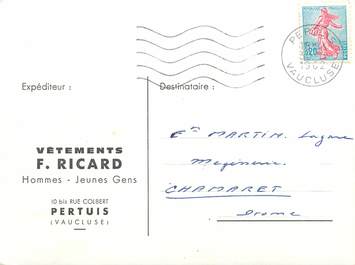 PERTUIS
VAUCLUSE
0,20
Expéditeur :
Destinataire :
VÊTEMENTS
F. RICARD
Hommes - Jeunes Gens
10 bis RUE COLBERT
PERTUIS
(VAUCLUSE)
Ets MARTIN
CHAMARET
Drome